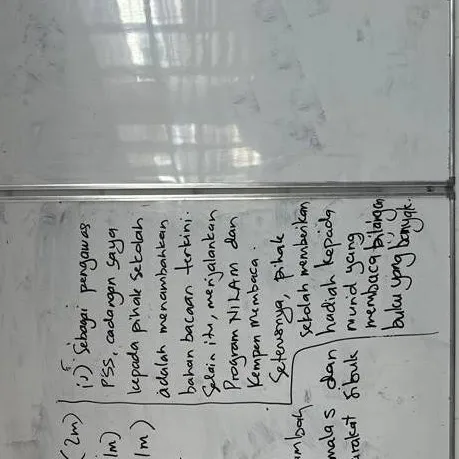 (2m)
1m)
1m)
i) Sebagai pengawas
PSS, cadangan saya
kepada pihak sekolah
adalah menambahkan
bahan bacaan terkini.
Selain itu, menjalankan
Program NILAM dan
Kempen membaca.
Seterusnya, pihak
sekolah memberikan
hadiah kepada
murid yang
membaca bilangan
buku yang banyak.
malas dan
arakat sibuk